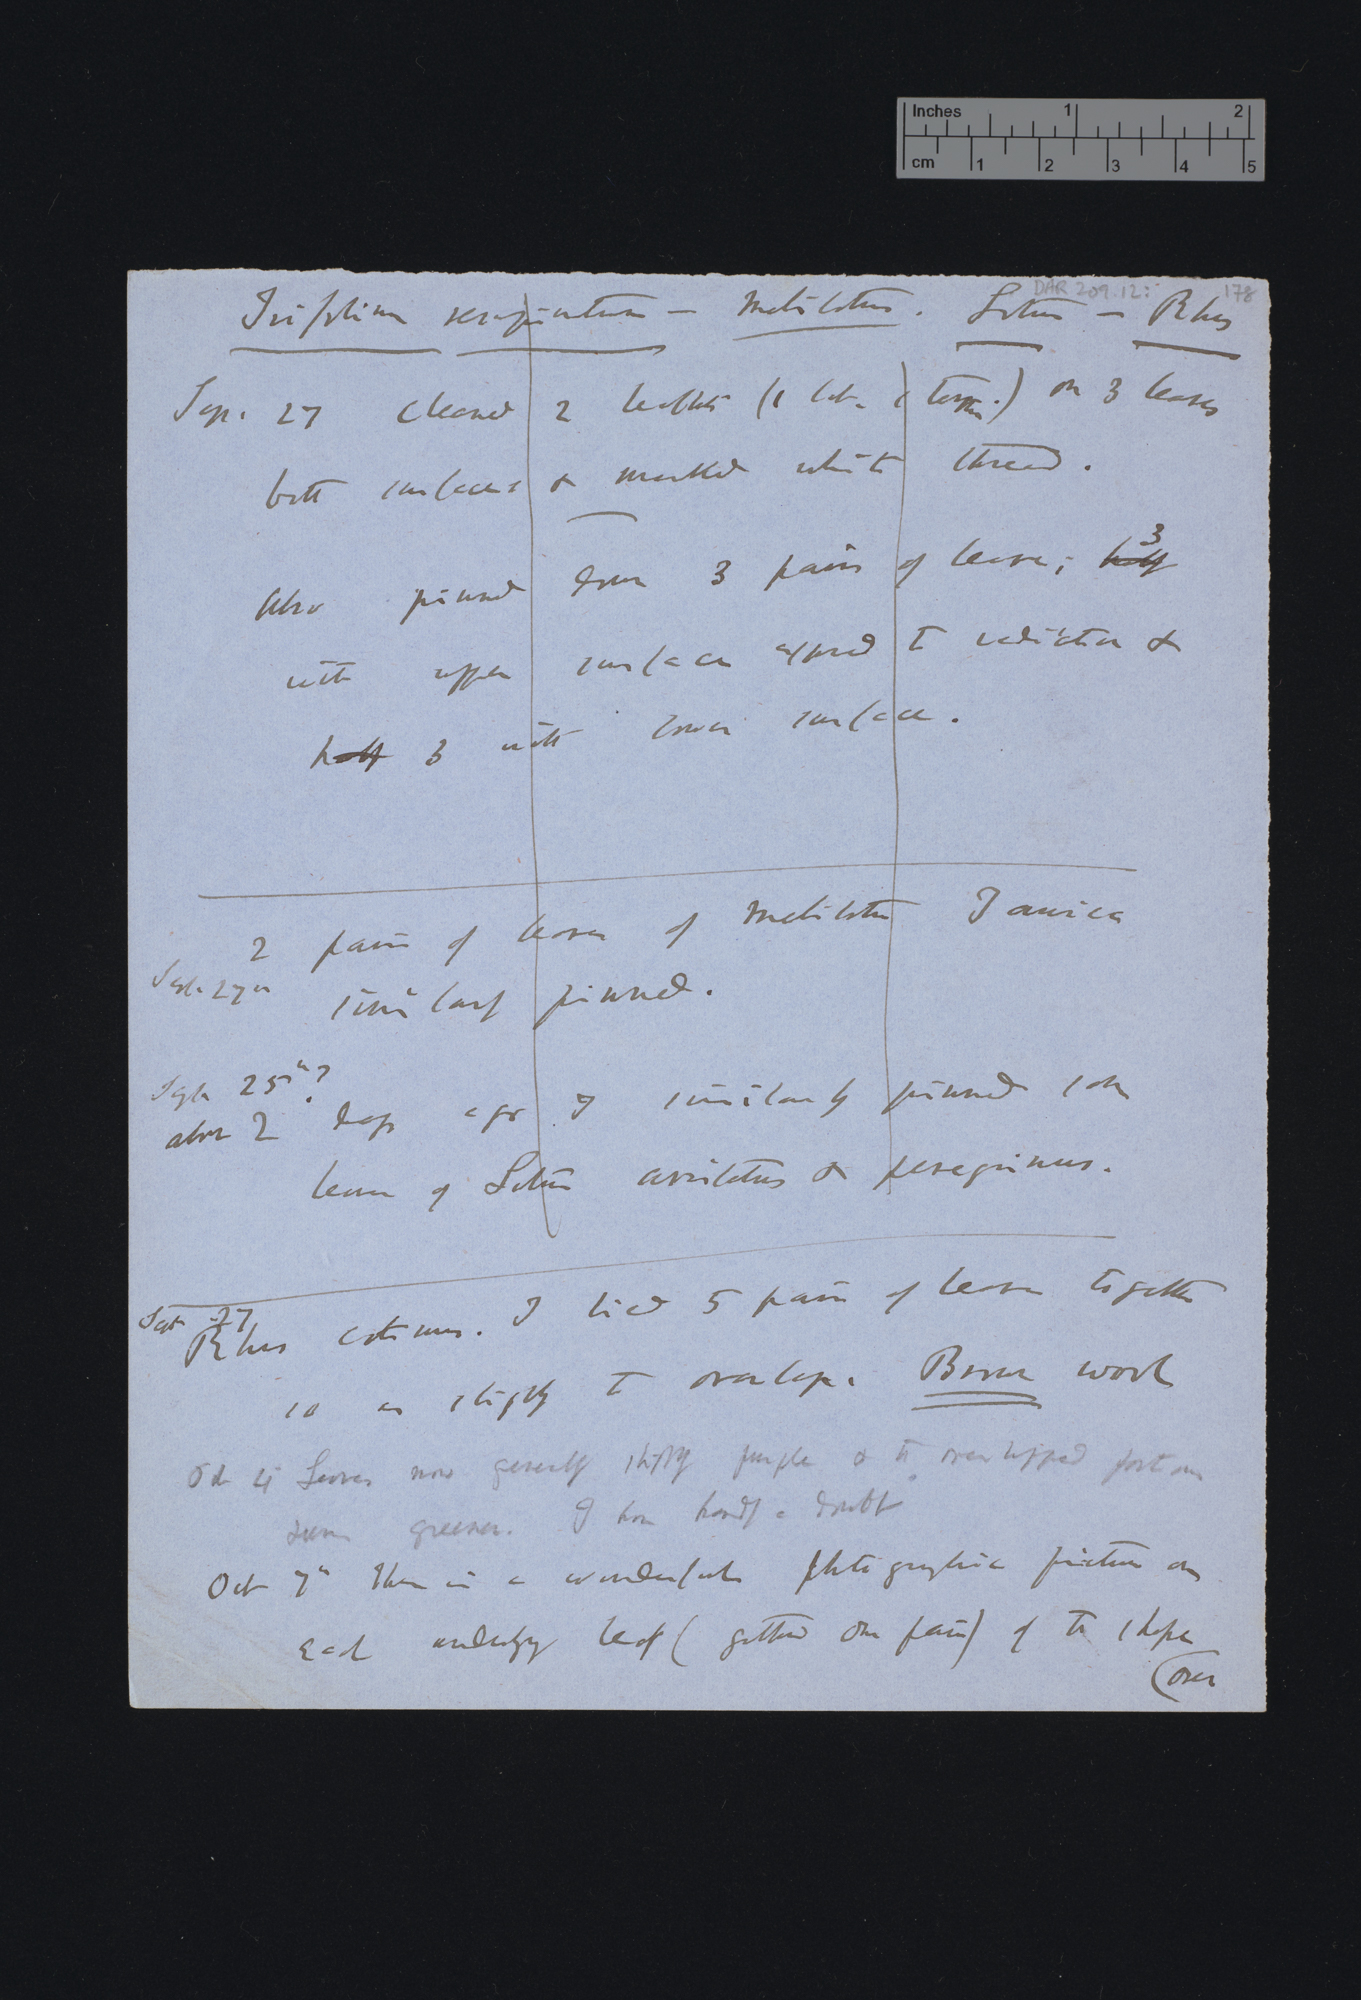 Inches 1 2
cm 1 2 3 4 5
DAR 209.12: 178
Trifolium resupinatum — Melilotus. Lotus — Rhus
Sep. 27 cleaned 2 leaflets (1 lat. & term.) on 3 leaves
both surfaces & marked white thread.
Also pinned down 3 pairs of leaves; half 3
with upper surface exposed to radiation &
half 3 with lower surface.
2 pairs of leaves of Melilotus Taurica
Sept. 27th similarly pinned.
Sept 25th?
about 2 days ago I similarly pinned
leaves of Lotus & peregrinus.
Sept 27
Rhus cotinus. I tied 5 pairs of leaves together
so as slightly to overlap. Brown wool
Oct 4 Leaves now generally slightly purple & the overlapped portions
seem greener. I have hardly a doubt
Oct 7th There is a wonderful photographic picture on
each underlying leaf (gathered one pair) of the shape
(over